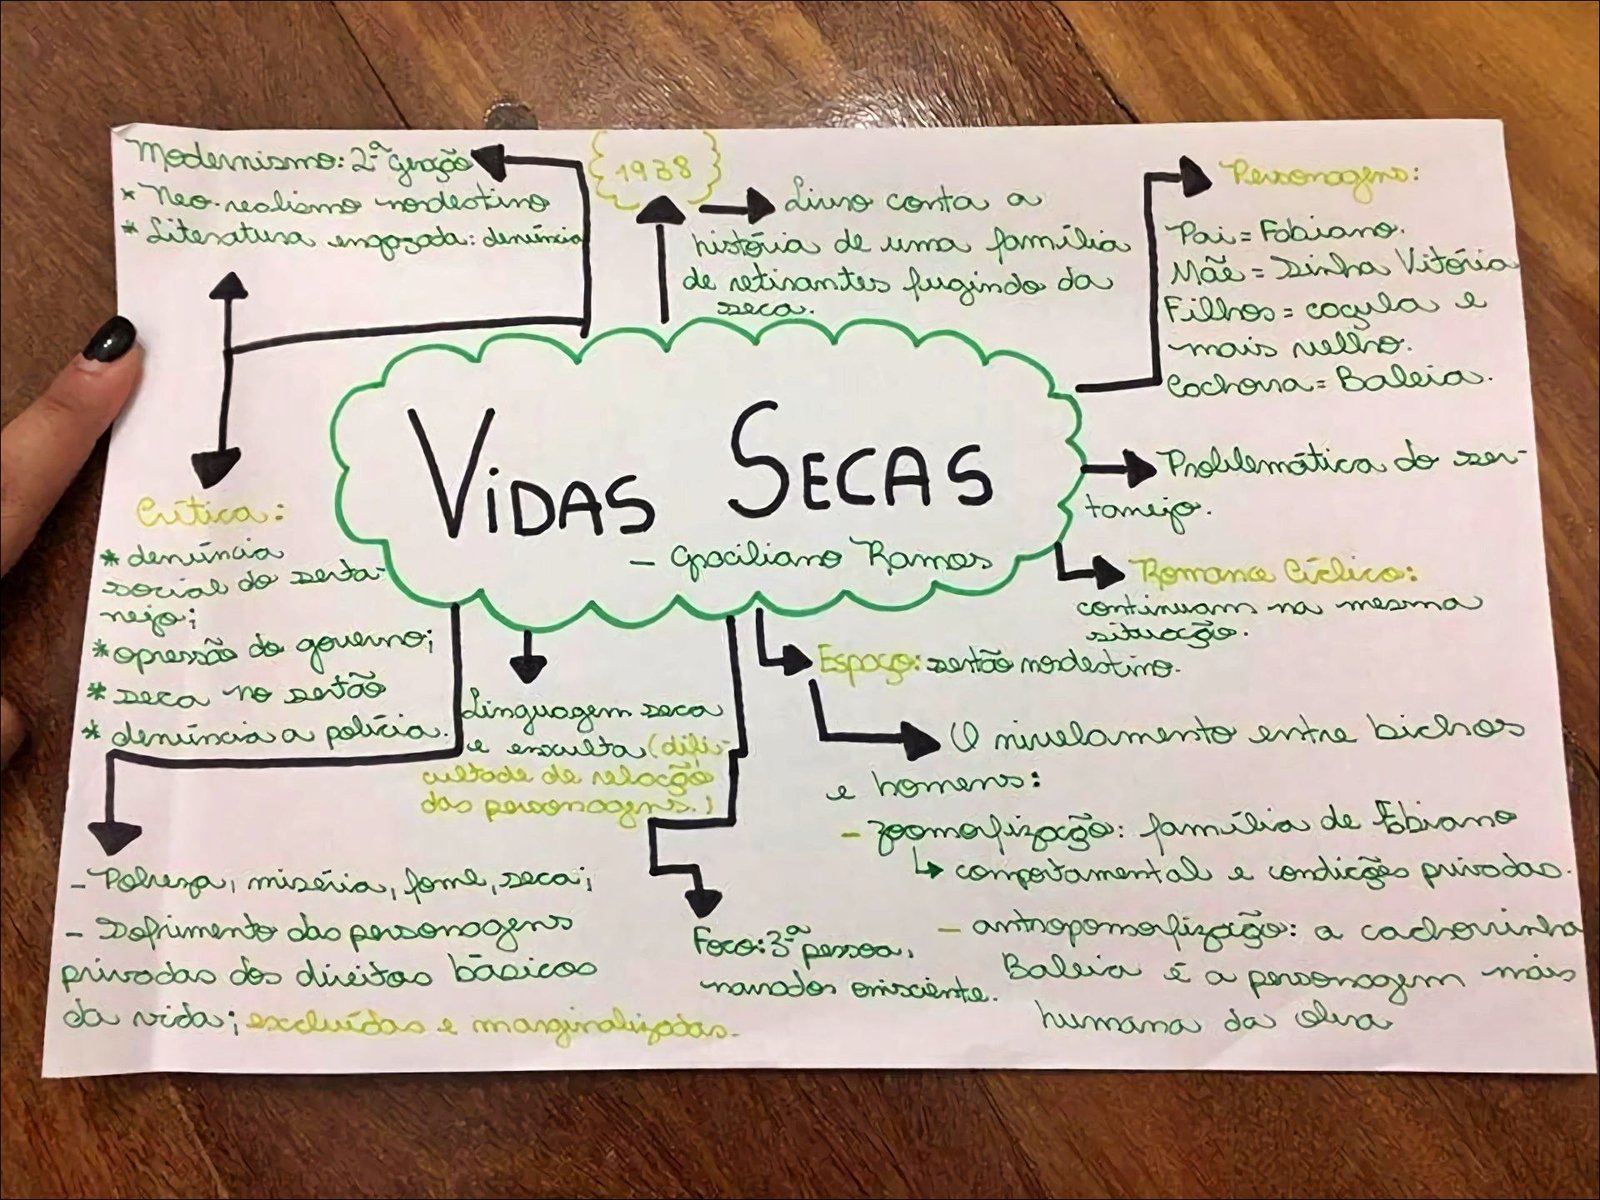 Modernismo: 2ª geração
* Neo-realismo nordestino
* Literatura engazada: denúncia
1938
Livro conta a
história de uma família
de retirantes fugindo da
seca.
Personagens:
Pai = Fabiano.
Mãe = Sinha Vitória
Filhos = caçula e
mais velho.
Cachorra = Baleia.
VIDAS SECAS
- Graciliano Ramos
Problemática do ser-
tanejo.
Romance Cíclico:
continuam na mesma
situação.
Espaço: sertão nordestino.
O nivelamento entre bichos
e homens:
- zoomorfização: família de Fabiano
↳ comportamental e condições privadas.
- antropomorfização: a cachorrinha
Baleia é a personagem mais
humana da obra
Crítica:
* denúncia
social do serta-
nejo;
* opressão do governo;
* seca no sertão
* denúncia a polícia.
Linguagem seca
e enxulta (difi-
cultade de relação
das personagens.)
Foco: 3ª pessoa,
narrados onisciente.
- Pobreza, miséria, fome, seca;
- Sofrimento das personagens
privadas dos direitos básicos
da vida; excluídas e marginalizadas.